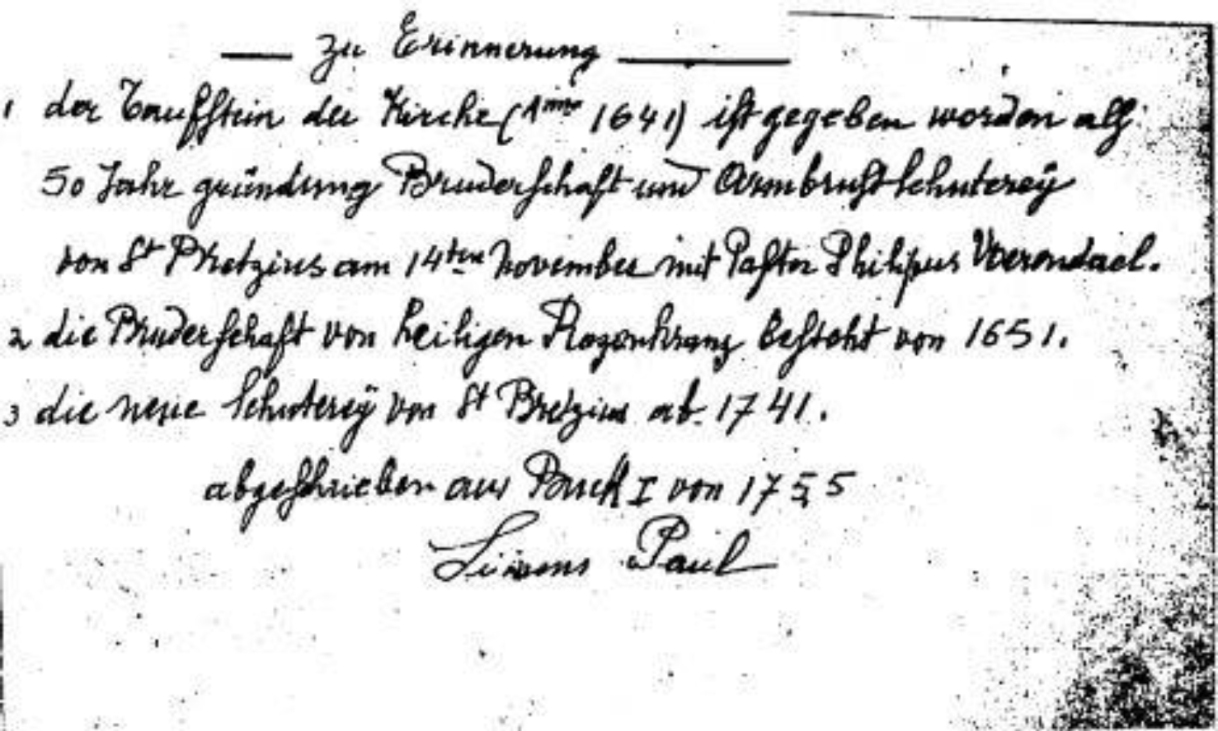 Zu Erinnerung
1 der Taufstein der Kirche (1641) ist gegeben worden als
50 Jahr gründung Bruderschaft und Armbrust schuterey
von St Bretzius am 14ten November mit Pastor Philipus
2 die Bruderschaft von heiligen Rozenkranz besteht von 1651.
3 die neue schuterey von St Bretzius ab. 1741.
abgeschrieben aus Buch I von 1755
Paul